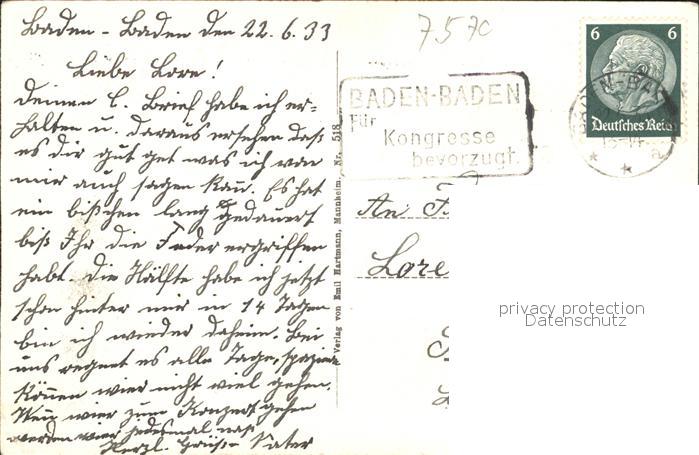 Baden-Baden den 22.6.33
Liebe Lore!
Deinen l. Brief habe ich er-
halten u. daraus ersehen daß
es dir gut get was ich von
mir auch sagen kan. Es hat
ein bißchen lang gedauert
biß Ihr die Feder ergriffen
habt. Die Hälfte habe ich jetzt
schon hinter mir in 14 Tagen
bin ich wieder daheim. Bei
uns regnet es alle Tage, spazieren
können wier nicht viel gehen.
Wen wier zum Konzert gehen
werden wier jedesmal naß
Herzl. Grüße Vater
7570
BADEN-BADEN
Für
Kongresse
bevorzugt.
6 6
Deutsches Reich
Verlag von Emil Hartmann, Mannheim. Nr. 518
An F
Lore
privacy protection
Datenschutz